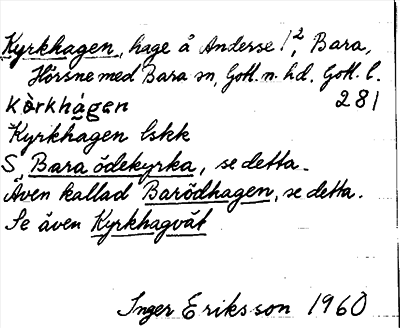 Kyrkhagen, hage å Anderse 1², Bara,
Hörsne med Bara sn, Gotl. n. hd. Gotl. l.
kòrkhágen 281
Kyrkhagen lskk
S, Bara ödekyrka, se detta.
Även kallad Barödhagen, se detta.
Se även Kyrkhagvät
Inger Eriksson 1960